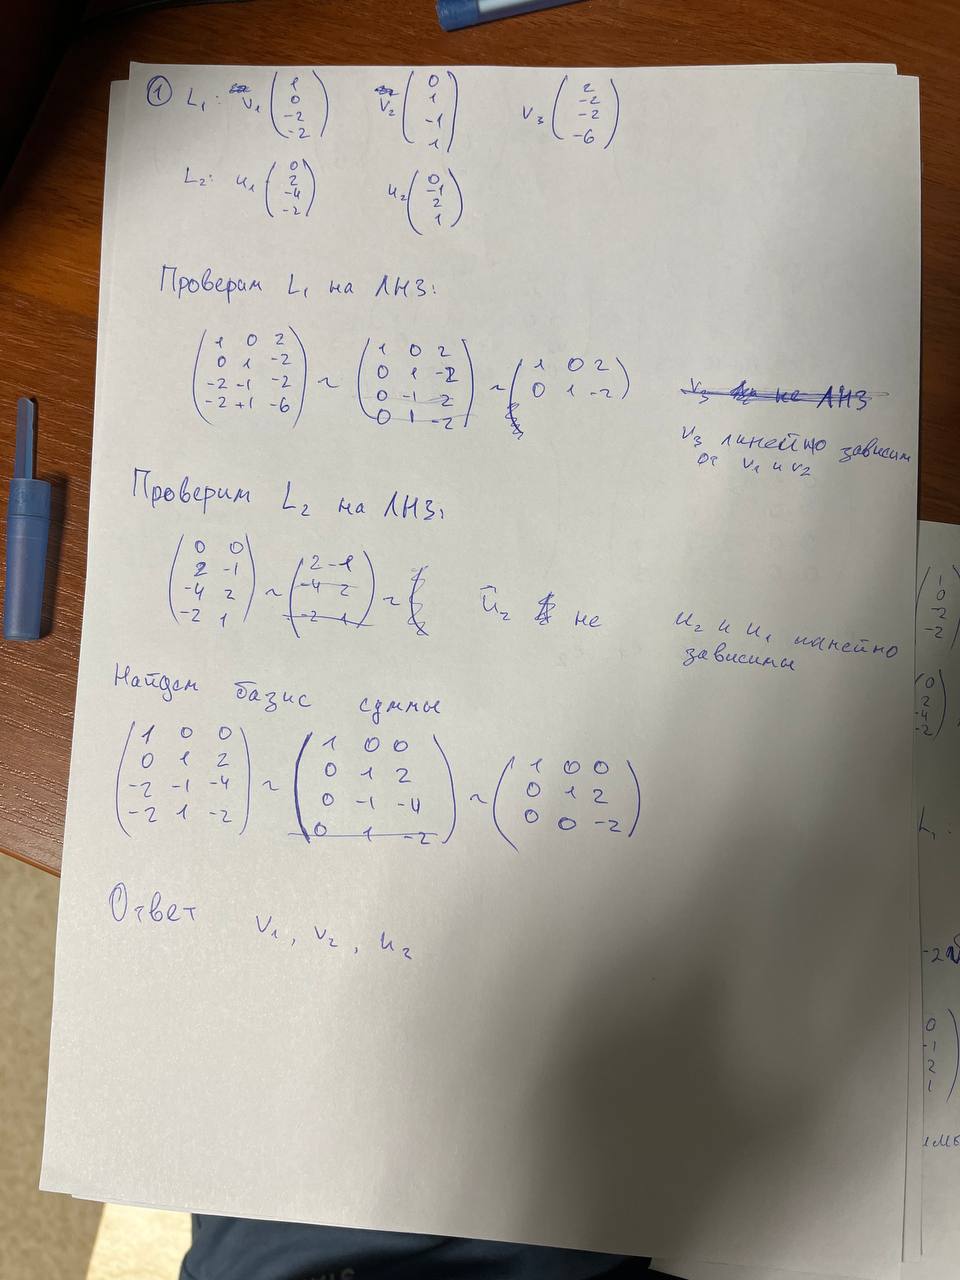 ① L₁: v₁ (1 0 -2 -2) v₂ (0 1 -1 1) v₃ (2 -2 -2 -6)
L₂: u₁ (0 2 -4 -2) u₂ (0 -1 2 1)
Проверим L₁ на ЛНЗ:
1 0 2
0 1 -2
-2 -1 -2
-2 +1 -6
~
1 0 2
0 1 -2
0 -1 2
0 1 -2
~
1 0 2
0 1 -2
v₃ не ЛНЗ
v₃ линейно зависим
от v₁ и v₂
Проверим L₂ на ЛНЗ:
0 0
2 -1
-4 2
-2 1
~
2 -1
-4 2
-2 1
~
ū₂ не
u₂ и u₁ линейно
зависимы
Найдем базис суммы
1 0 0
0 1 2
-2 -1 -4
-2 1 -2
~
1 0 0
0 1 2
0 -1 -4
0 1 -2
~
1 0 0
0 1 2
0 0 -2
Ответ v₁, v₂, u₂
1
0
-2
-2
0
2
-4
-2
L₁:
-2
0
-1
2
1